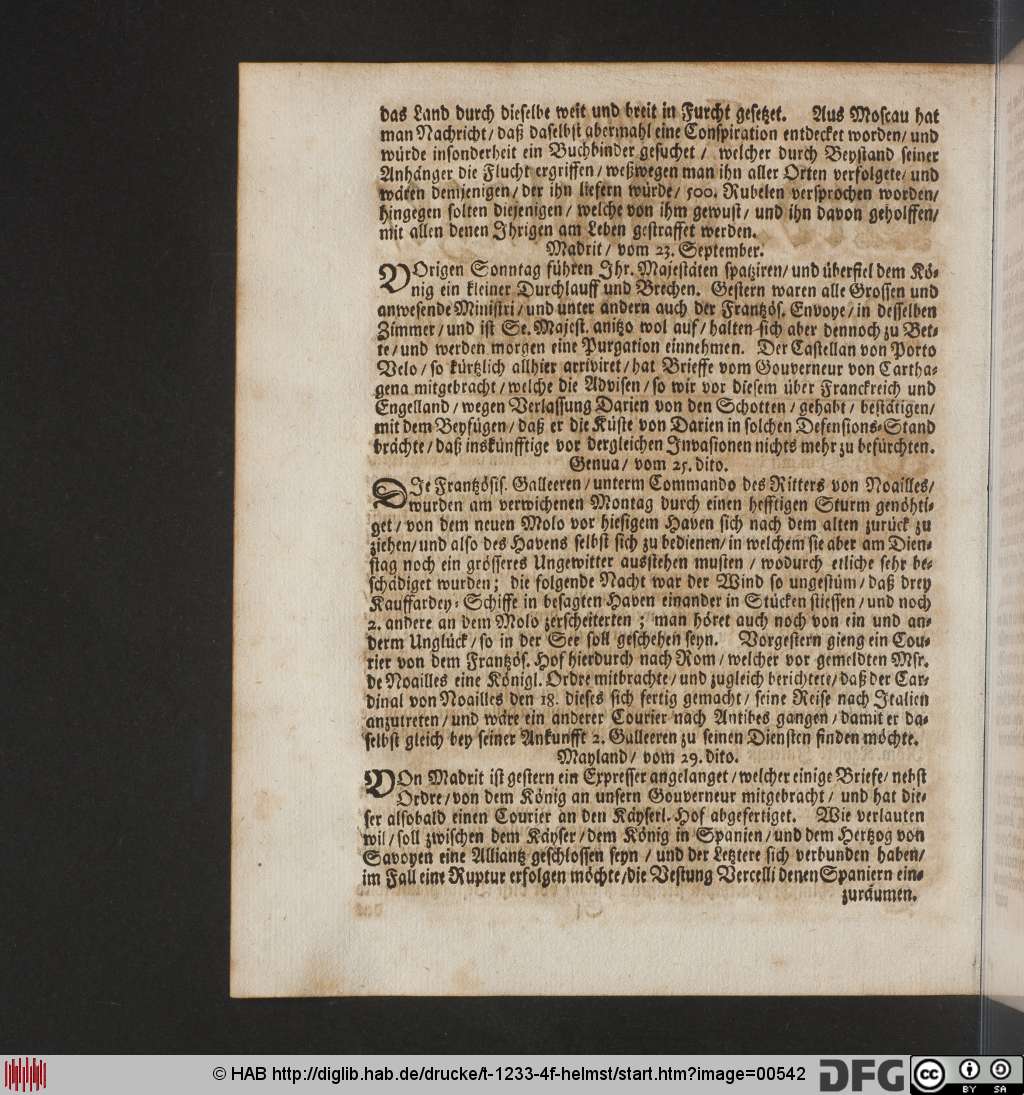 das Land durch dieselbe weit und breit in Furcht gesetzet. Aus Moscau hat
man Nachricht/ daß daselbst abermahl eine Conspiration entdecket worden/ und
würde insonderheit ein Buchbinder gesuchet / welcher durch Beystand seiner
Anhänger die Flucht ergriffen/ weßwegen man ihn aller Orten verfolgete/ und
wären demjenigen/ der ihn liefern würde/ 500. Rubelen versprochen worden/
hingegen solten diejenigen/ welche von ihm gewust/ und ihn davon geholffen/
mit allen denen Ihrigen am Leben gestraffet werden.
Madrit/ vom 23. September.
VOrigen Sonntag führen Ihr. Majestäten spatziren/ und überfiel dem Kö-
nig ein kleiner Durchlauff und Brechen. Gestern waren alle Grossen und
anwesende Ministri/ und unter andern auch der Frantzös. Envoye/ in desselben
Zimmer/ und ist Se. Majest. anitzo wol auf/ halten sich aber dennoch zu Bet-
te/ und werden morgen eine Purgation einnehmen. Der Castellan von Porto
Velo/ so kürtzlich allhier arriviret/ hat Brieffe vom Gouverneur von Cartha-
gena mitgebracht/ welche die Advisen/ so wir vor diesem über Franckreich und
Engelland/ wegen Verlassung Darien von den Schotten/ gehabt/ bestätigen/
mit dem Beyfügen/ daß er die Küste von Darien in solchen Defensions-Stand
brächte/ daß inskünfftige vor dergleichen Invasionen nichts mehr zu befürchten.
Genua/ vom 25. dito.
DIe Frantzösis. Galleeren/ unterm Commando des Ritters von Noailles/
wurden am verwichenen Montag durch einen hefftigen Sturm genöhti-
get/ von dem neuen Molo vor hiesigem Haven sich nach dem alten zurück zu
ziehen/ und also des Havens selbst sich zu bedienen/ in welchem sie aber am Dien-
stag noch ein grösseres Ungewitter ausstehen musten/ wodurch etliche sehr be-
schädiget wurden; die folgende Nacht war der Wind so ungestüm/ daß drey
Kauffardey-Schiffe in besagten Haven einander in Stücken stiessen/ und noch
2. andere an dem Molo zerscheiterten; man höret auch noch von ein und an-
derm Unglück/ so in der See soll geschehen seyn. Vorgestern gieng ein Cou-
rier von dem Frantzös. Hof hierdurch nach Rom/ welcher vor gemeldten Msr.
de Noailles eine Königl. Ordre mitbrachte/ und zugleich berichtete/ daß der Car-
dinal von Noailles den 18. dieses sich fertig gemacht/ seine Reise nach Italien
anzutreten/ und wäre ein anderer Courier nach Antibes gangen/ damit er da-
selbst gleich bey seiner Ankunfft 2. Galleeren zu seinen Diensten finden möchte.
Mayland/ vom 29. dito.
VOn Madrit ist gestern ein Expresser angelanget/ welcher einige Briefe/ nebst
Ordre/ von dem König an unsern Gouverneur mitgebracht/ und hat die-
ser alsobald einen Courier an den Käyserl. Hof abgefertiget. Wie verlauten
wil/ soll zwischen dem Käyser/ dem König in Spanien/ und dem Hertzog von
Savoyen eine Alliantz geschlossen seyn/ und der Letztere sich verbunden haben/
im Fall eine Ruptur erfolgen möchte/ die Vestung Vercelli denen Spaniern ein-
zuräumen.
© HAB http://diglib.hab.de/drucke/t-1233-4f-helmst/start.htm?image=00542
DFG
cc BY SA